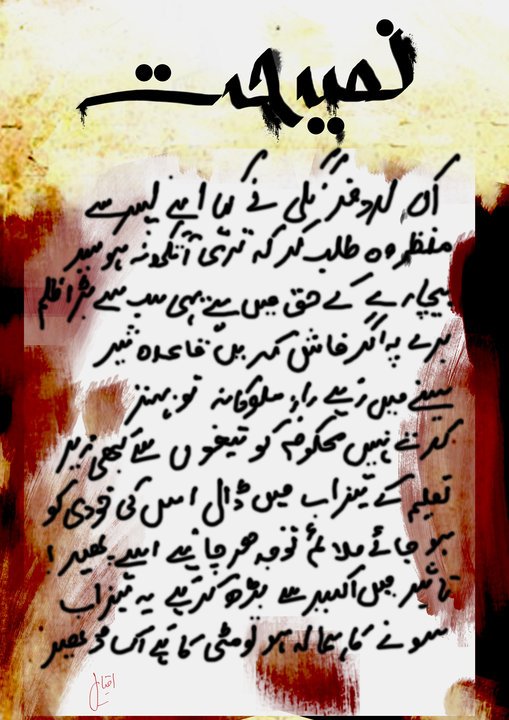 نصیحت
اک لرد فرنگی نے کہا اپنے پسر سے
منظر وہ طلب کر کہ تری آنکھ نہ ہو سیر
بیچارے کے حق میں ہے یہی سب سے بڑا ظلم
برے پہ اگر فاش کریں قاعدہ شیر
سینے میں رہے راز ملوکانہ تو بہتر
کرتے نہیں محکوم کو تیغوں سے کبھی زیر
تعلیم کے تیزاب میں ڈال اس کی خودی کو
ہو جائے ملائم تو جدھر چاہے اسے پھیر!
تاثیر میں اکسیر سے بڑھ کر ہے یہ تیزاب
سونے کا ہمالہ ہو تو مٹی کا ہے اک ڈھیر
اقبال